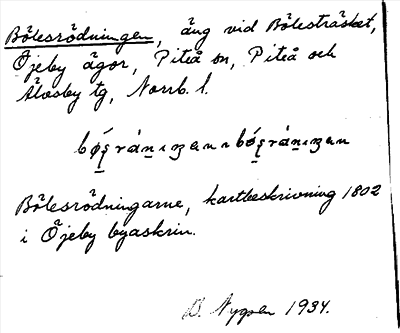 Bölesrödningen, äng vid Bölesträsket,
Öjeby ägor, Piteå sn, Piteå och
Älvsby tg, Norrb. l.
Bölesrödningarne, kartbeskrivning 1802
i Öjeby byaskrin.
1934.